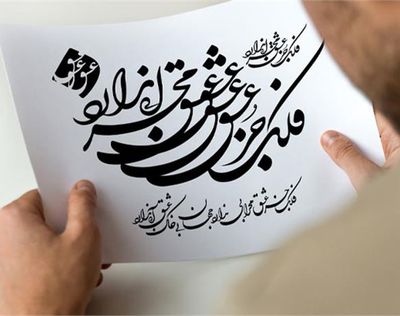 فلک جز عشق محرابی ندارد
فلک جز عشق محرابی ندارد
فلک جز عشق محرابی ندارد جهان بی خاک عشق آبی ندارد